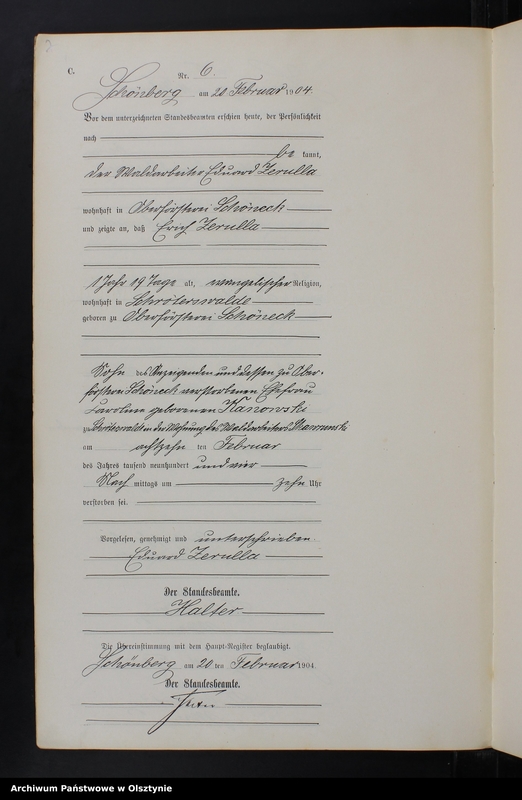 C.
Nr. 6.
Schönberg am 20 Februar 1904.
Vor dem unterzeichneten Standesbeamten erschien heute, der Persönlichkeit
nach
be kannt,
der Waldarbeiter Eduard Zerulla
wohnhaft in Oberförsterei Schöneck
und zeigte an, daß Erich Zerulla
1 Jahr 19 Tage alt, evangelischer Religion,
wohnhaft in Schröterswalde
geboren zu Oberförsterei Schöneck
Sohn des Anzeigenden und dessen zu Ober-
försterei Schöneck verstorbenen Ehefrau
Caroline geborenen Kanowski
zu Schröterswalde in der Wohnung des Waldarbeiters
am achtzehn ten Februar
des Jahres tausend neunhundert und vier
Nach mittags um zehn Uhr
verstorben sei.
Vorgelesen, genehmigt und unterschrieben
Eduard Zerulla
Der Standesbeamte.
Halter
Die Übereinstimmung mit dem Haupt-Register beglaubigt.
Schönberg am 20 ten Februar 1904.
Der Standesbeamte.
Archiwum Państwowe w Olsztynie